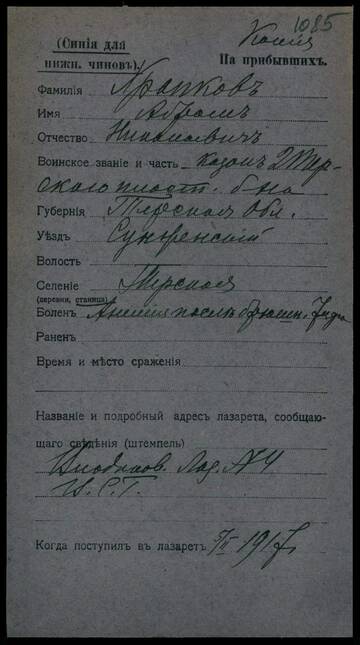 1085
(Синія для нижн. чиновъ).
Копія
На прибывшихъ.
Фамилія Храпковъ
Имя Абрамъ
Отчество Николаевичъ
Воинское званіе и часть казакъ 2 Тер-
скаго пласт. б-на
Губернія Терская Обл.
Уѣздъ Сунженскій
Волость
Селеніе Терская
(деревня, станица)
Боленъ Анемія послѣ брюшн. тифа
Раненъ
Время и мѣсто сраженія
Названіе и подробный адресъ лазарета, сообщаю-
щаго свѣдѣнія (штемпель)
Владикав. Лаз. N4
В.С.Г.
Когда поступилъ въ лазаретъ 5/II 1917 г.